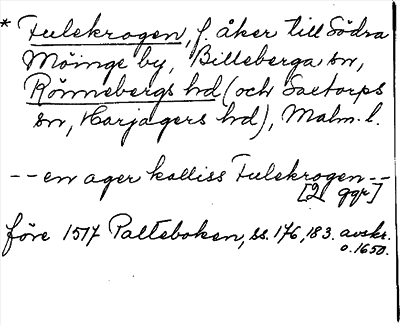 * Fulekrogen, f. åker till Södra
Möinge by, Billeberga sn,
Rönnebergs hd (och Saxtorps
sn, Harjagers hd), Malm. l.
-- en ager kalliss Fulekrogen --
[2 ggr]
före 1517 Palteboken, ss. 176, 183. avskr.
o. 1650.